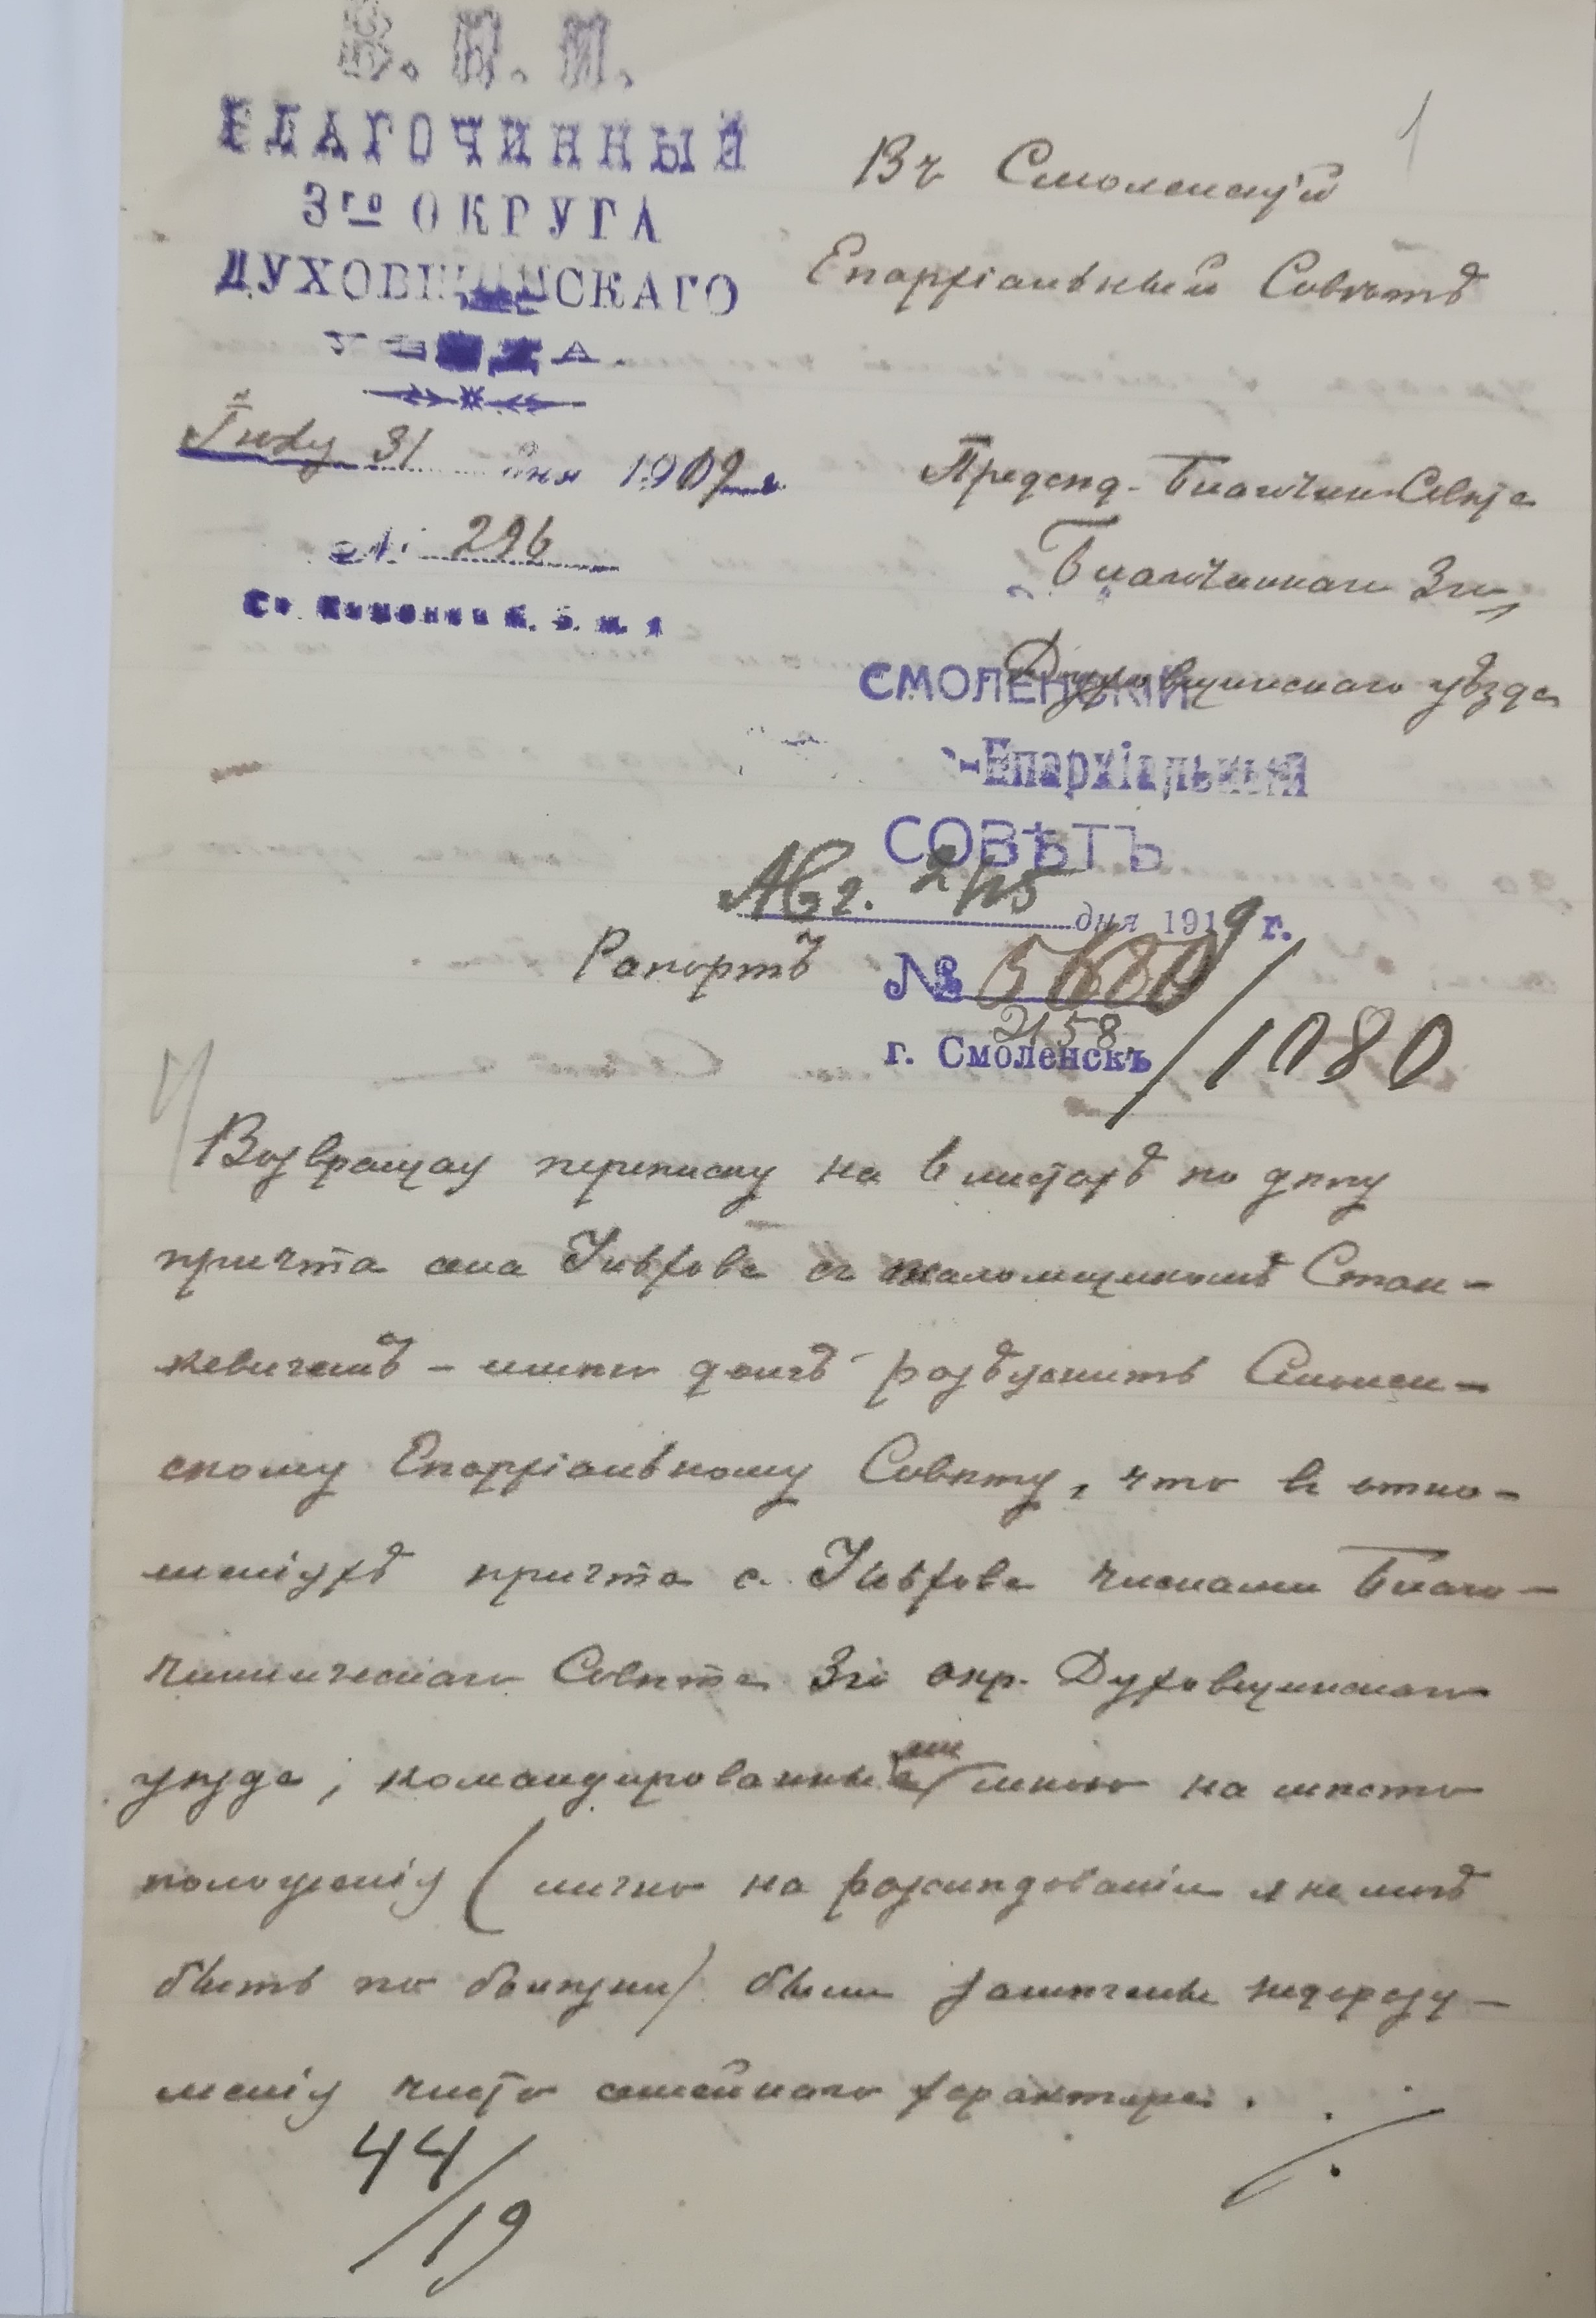 БЛАГОЧИННЫЙ
3го ОКРУГА
ДУХОВЩИНСКАГО
31 дня 1919 г.
№ 296
1
Въ Смоленскій
Епархіальный Совѣтъ
Предсѣд. Благочин. Совѣта
Благочиннаго 3го
Духовщинскаго уѣзда
СМОЛЕНСКІЙ
Епархіальный
СОВѢТЪ
Авг. 24/15 дня 1919 г.
Рапортъ
№ 5680
2158
/1080
г. Смоленскъ
Возвращая переписку на 6 листахъ по дѣлу
причта села с псаломщикомъ Стан-
кевичемъ – имѣю долгъ разъяснить Смолен-
скому Епархіальному Совѣту, что в отно-
шеніяхъ причта с. членами Благо-
чинническаго Совѣта 3го окр. Духовщинскаго
уѣзда, командированными мною на мѣсто
положенія (лично на разслѣдованіи я не могъ
быть по болѣзни) были замѣчены недоразу-
менія чисто семейнаго характера.
44/19